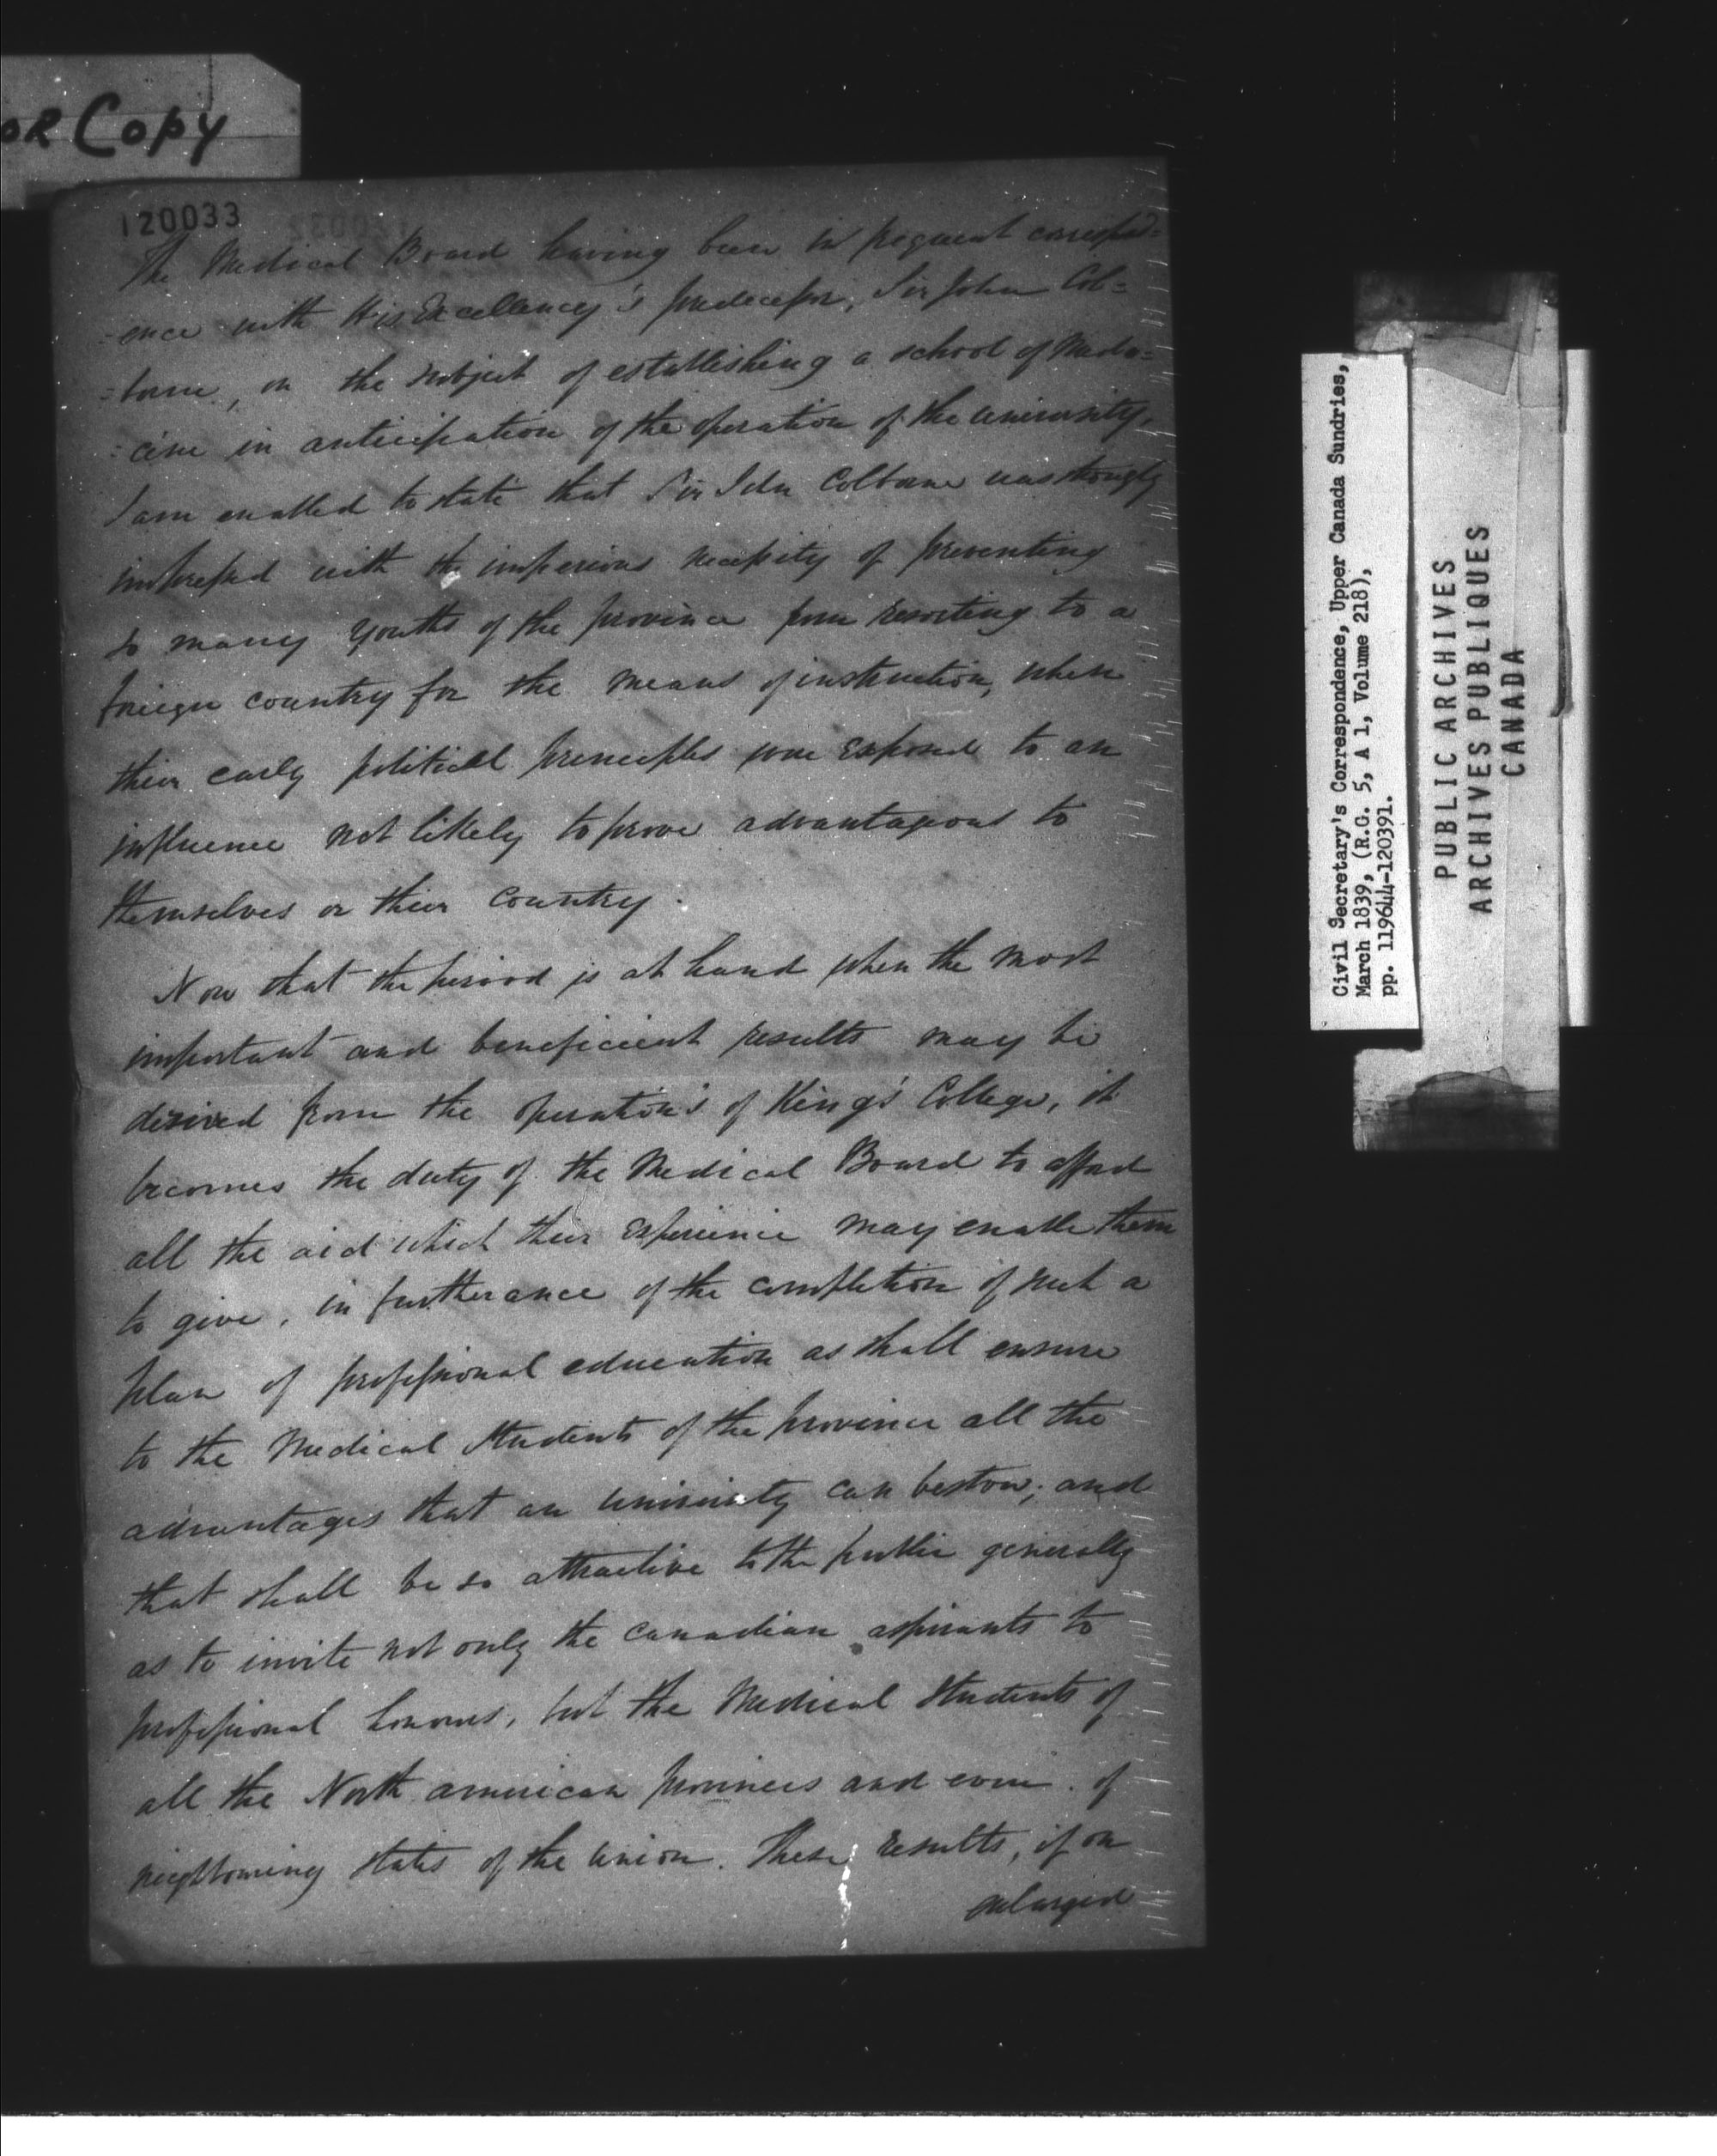 OR Copy
120033
The Medical Board having been in frequent correspond=
=ence with His Excellency's predecessor, Sir John Col=
=borne, on the subject of establishing a school of Medi=
=cine in anticipation of the operation of the University,
I am enabled to state that Sir John Colborne was strongly
impressed with the imperious necessity of preventing
so many youths of the province from resorting to a
foreign country for the means of instruction, when
their early political principles were exposed to an
influence not likely to prove advantageous to
themselves or their country.
Now that the period is at hand when the most
important and beneficient results may be
desired from the operations of King's College, it
becomes the duty of the Medical Board to afford
all the aid which their experience may enable them
to give, in furtherance of the completion of such a
plan of professional education as shall ensure
to the Medical Students of the province all the
advantages that an University can bestow; and
that shall be so attractive to the public generally
as to invite not only the Canadian aspirants to
professional honours, but the Medical Students of
all the North American provinces and even of
neighbouring states of the Union. These results, if on
enlarged
Civil Secretary's Correspondence, Upper Canada Sundries,
March 1839, (R.G. 5, A 1, Volume 218),
pp. 119644-120391.
PUBLIC ARCHIVES
ARCHIVES PUBLIQUES
CANADA